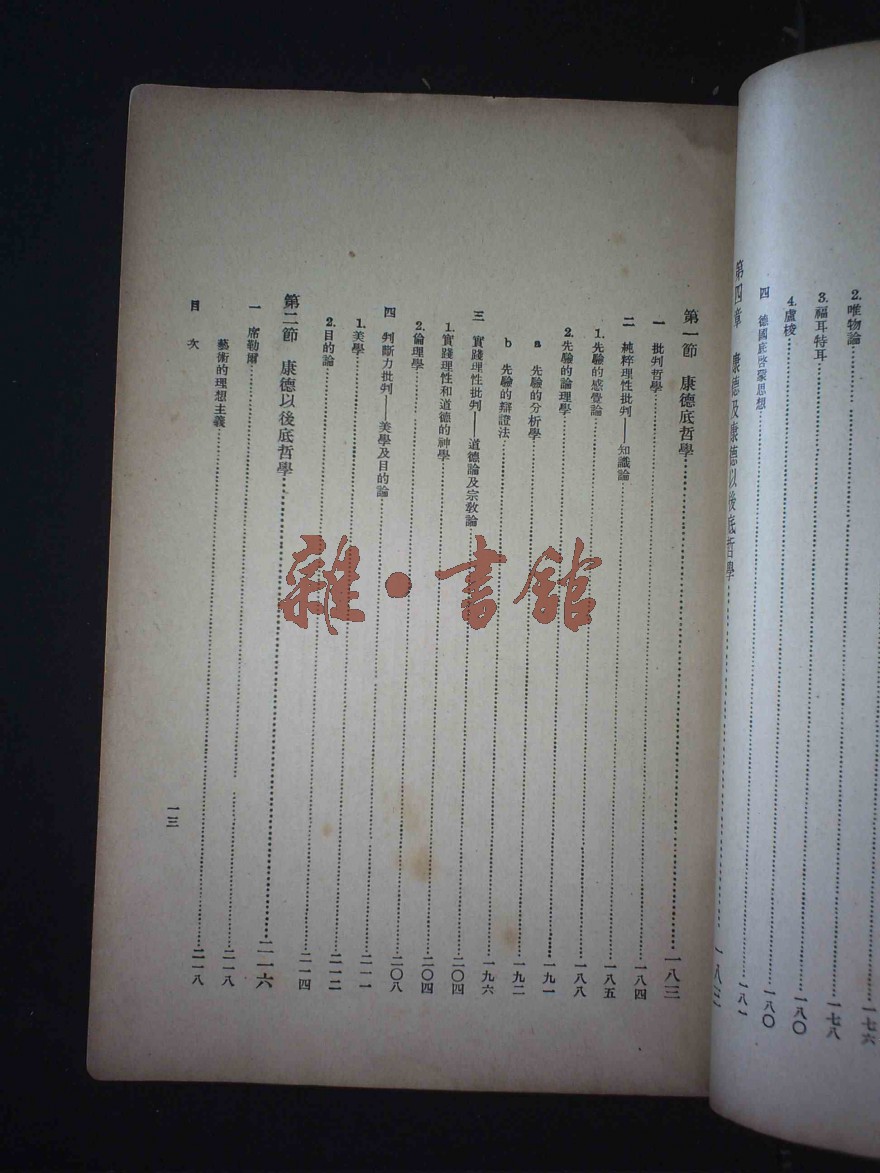 2. 唯物論……一七六
3. 福耳特耳……一七八
4. 盧梭……一八〇
四 德國底啓蒙思想……一八〇
一八一
第四章 康德及康德以後底哲學……一八三
第一節 康德底哲學……一八三
一 批判哲學……一八四
二 純粹理性批判——知識論……一八五
1. 先驗的感覺論……一八八
2. 先驗的論理學……一九一
a 先驗的分析學……一九二
b 先驗的辯證法……一九六
三 實踐理性批判——道德論及宗教論……二〇四
1. 實踐理性和道德的神學……二〇四
2. 倫理學……二〇八
四 判斷力批判——美學及目的論……二一一
1. 美學……二一二
2. 目的論……二一四
第二節 康德以後底哲學……二一六
一 席勒爾……二一八
藝術的理想主義……二一八
目次
一三
雜·書館